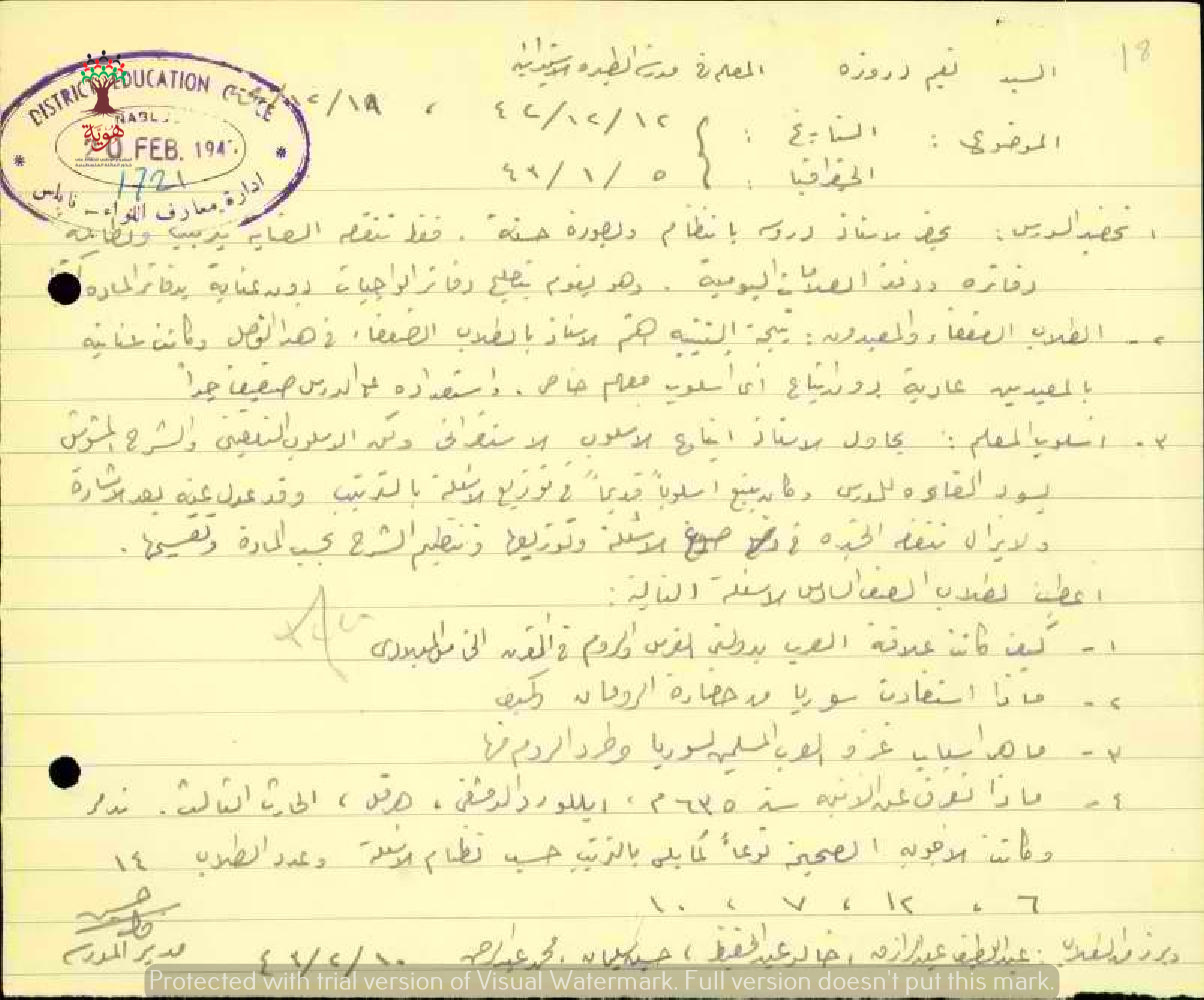 18
السيد نعيم دروزه المعلم في مدرسة الابتدائية
DISTRICT EDUCATION OFFICE
NABLUS
هُوِيَّة
20 FEB. 194
1721
ادارة معارف اللواء - نابلس
الموضوع : التاريخ : ٤٢/١٢/١٢ ،
الجغرافيا : ٤٣/١/٥
١ تحضير الدروس : يحضر الاستاذ دروسه بانتظام وبصورة حسنة . فقط تنقصه العناية بترتيب ونظافة
دفاتره ودفتر العلامات اليومية . وهو يقوم بتصليح دفاتر الواجبات دون عناية بدفاتر المادة
٢ - الطلاب الضعفاء والمعيدون : نتيجة التنبيه اهتم الاستاذ بالطلاب الضعفاء في هذا الفصل وكانت عنايته
بالمعيدين عادية دون اتباع أي اسلوب معهم خاص . واستعداده في الدرس ضعيف جداً
٣ - اسلوب المعلم : يحاول الاستاذ اتباع الاسلوب الاستقرائي ولكن الاسلوب التلقيني والشرح المشوش
يسود القاءه للدرس وكان يتبع اسلوباً قديماً في توزيع الاسئلة بالترتيب وقد عدل عنه بعد الاشارة
ولا يزال تنقصه الخبره في صوغ الاسئلة وتوزيعها وتنظيم الشرح بحسب المادة وتقسيمها .
اعطيت لطلاب الصف السادس الاسئلة التالية :
١ - كيف كانت علاقة العرب بدولتي الفرس والروم في القرن الخامس الميلادي
٢ - ماذا استفادت سوريا من حضارة الرومان وكيف
٣ - ما هي اسباب غزو العرب المسلمين لسوريا وطرد الروم منها
٤ - ماذا تعرف عن الآتية سنة ٦٣٥ م ، ابللودور الدمشقي ، هرقل ، الحارث الثالث . تدمر
وكانت الاجوبة الصحيحة نوعاً كما يلي بالترتيب حسب نظام الاسئلة وعدد الطلاب ١٤
٦ ، ١٢ ، ٧ ، ١٠
وبرز من الطلاب : عبد اللطيف عبد الرازق ، خالد عبد الحفيظ ، حسين سليمان ، محمد عبد الرحمن ٤٣/٢/١٠
مدير المدرسة
Protected with trial version of Visual Watermark. Full version doesn't put this mark.